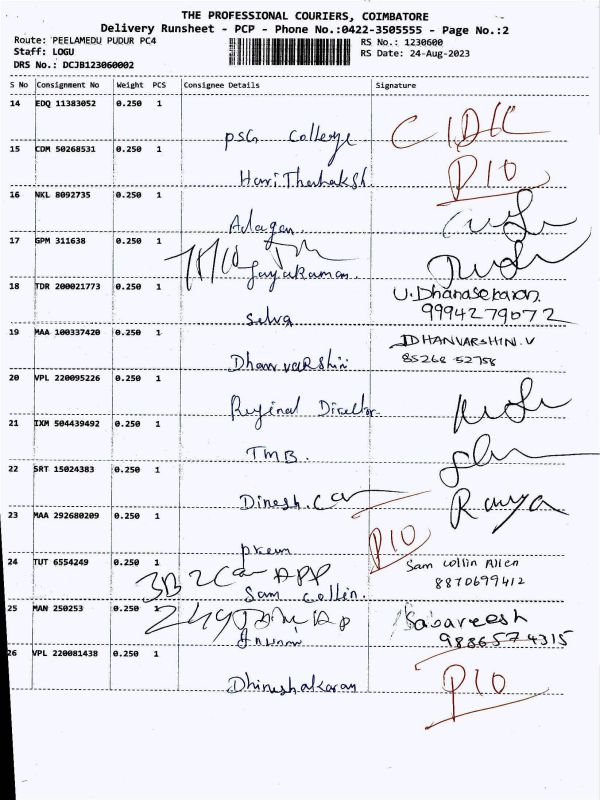 THE PROFESSIONAL COURIERS, COIMBATORE
Delivery Runsheet - PCP - Phone No.:0422-3505555 - Page No.:2
Route: PEELAMEDU PUDUR PC4 RS No.: 1230600
Staff: LOGU RS Date: 24-Aug-2023
DRS No.: DCJB123060002
S No Consignment No Weight PCS Consignee Details Signature
14 EDQ 11383052 0.250 1
PSG College
15 CDM 50268531 0.250 1
Hari PIO
16 NKL 8092735 0.250 1
Alagan
17 GPM 311638 0.250 1
Jayakumar
18 TDR 200021773 0.250 1 U.Dhanasekaran
9994279072
Selva
19 MAA 100337420 0.250 1 DHANVARSHIN.V
85268 52758
Dhanvarshini
20 VPL 220095226 0.250 1
Reginal Director
21 IXM 504439492 0.250 1
TMB.
22 SRT 15024383 0.250 1
Dinesh. Ramya
23 MAA 292680209 0.250 1 PIO
Prem
24 TUT 6554249 0.250 1 Sam Collin Allen
8870699412
Sam Collin.
25 MAN 250253 0.250 1 Sabareesh
9886574315
26 VPL 220081438 0.250 1 PIO
Dhineshakaran